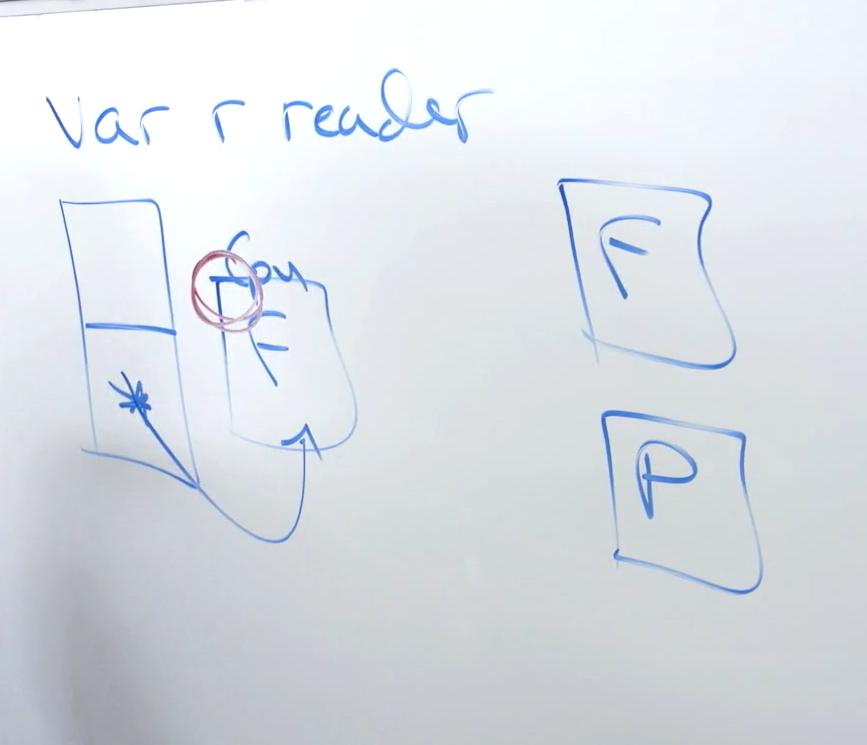 Var r reader
Copy
F
F
P